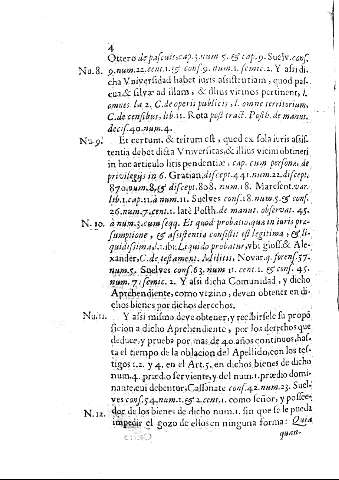 4
Ottero de pascuis, cap. 3. num 5. & cap. 9. Suelv. cons.
Nu. 8. 9. num. 22. cent. 1. & cons. 9. num. 1. semic. 2. Y assi di-
cha Vniversidad habet iuris assistentiam, quod pas-
cua & silvæ ad illam, & illius vicinos pertinent, l.
omnes la 2. C. de operis publicis, l. omne territorium,
C. de censibus, lib. 11. Rota post tract. Posth. de manut.
decis. 40. num. 4.
Nu. 9. Et certum, & tritum est, quod ex sola iuris assis-
tentia debet dicta Vniversitas, & illius vicini obtineri
in hoc articulo litispendentiæ, cap. cum personæ, de
privilegijs in 6. Gratian. discept. 441. num. 22. discept.
870. num. 8. & discept. 808. num. 18. Marescot. var.
lib. 1. cap. 11. à num. 11. Suelves cons. 18. num. 5. & cons.
26. num. 7. cent. 1. latè Posth. de manut. observat. 45.
N. 10. à num. 3. cum seqq. Et quod probatio, quæ in iuris præ-
sumptione, & assistentia consistit est legitima, & li-
quidissima, d. l. ibi: Liquido probatur, vbi gloss. & Ale-
xander, C. de testament. Militis, Novar. q. forens. 57.
num. 5. Suelves cons. 63. num 11. cent. 1. & cons. 45.
num. 7. semic. 2. Y assi dicha Comunidad, y dicho
Aprehendiente, como vizino, deven obtener en di-
chos bienes por dichos derechos.
Nu. 11. Y assi mismo deve obtener, y recibirsele su propo-
sicion a dicho Aprehendiente, por los derechos que
deduce, y prueba por mas de 40. años continuos, has-
ta el tiempo de la oblacion del Apellido, con los tes-
tigos 1. 2. y 4. en el Art. 5. en dichos bienes de dicho
num. 4. prædio serviente, y del num. 1. prædio domi-
nante, cui debentur, Cassonate cons. 42. num. 23. Suel-
ves cons. 54. num. 1. & 2. cent. 1. como señor, y posse-
N. 12. dor de los bienes de dicho num. 1. sin que se le pueda
impedir el gozo de ellos en ninguna forma: Quia
quan-